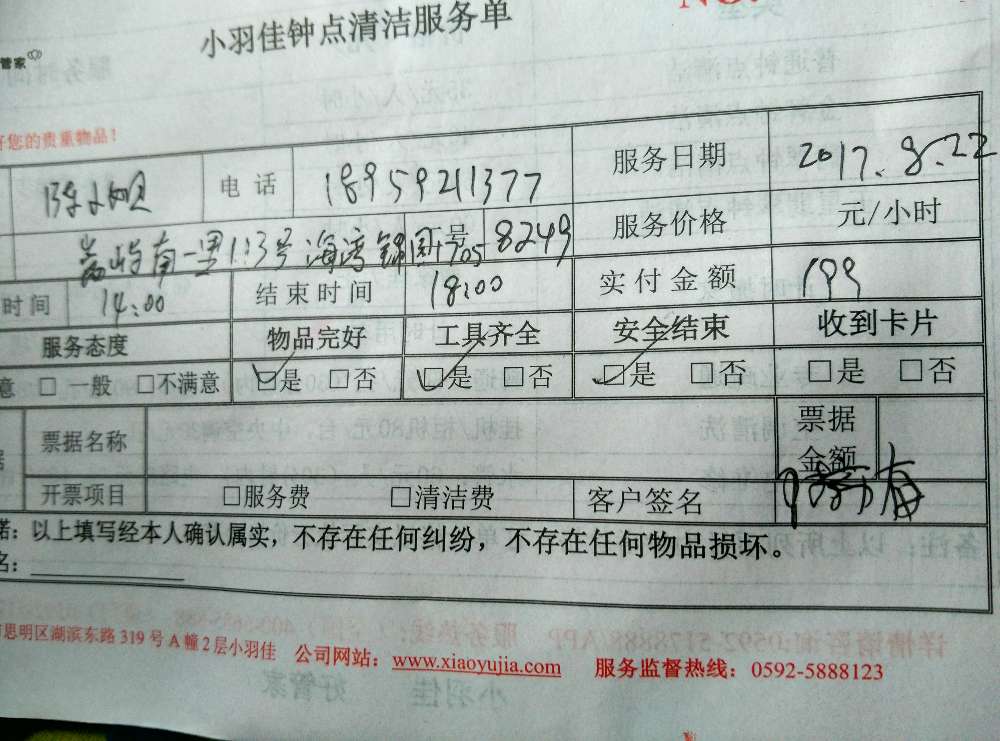 小羽佳钟点清洁服务单
NO.
管家
您的贵重物品!
电话 18959211377 服务日期 2017.8.22
南一里113号海湾锦园1705 8249 服务价格 元/小时
时间 14:00 结束时间 18:00 实付金额 199
服务态度 物品完好 工具齐全 安全结束 收到卡片
意 □ 一般 □不满意 ☑是 □否 ☑是 □否 ☑是 □否 □是 □否
据 票据名称 票据金额
开票项目 □服务费 □清洁费 客户签名
诺: 以上填写经本人确认属实, 不存在任何纠纷, 不存在任何物品损坏。
名:
思明区湖滨东路319号A幢2层小羽佳 公司网站: www.xiaoyujia.com 服务监督热线: 0592-5888123